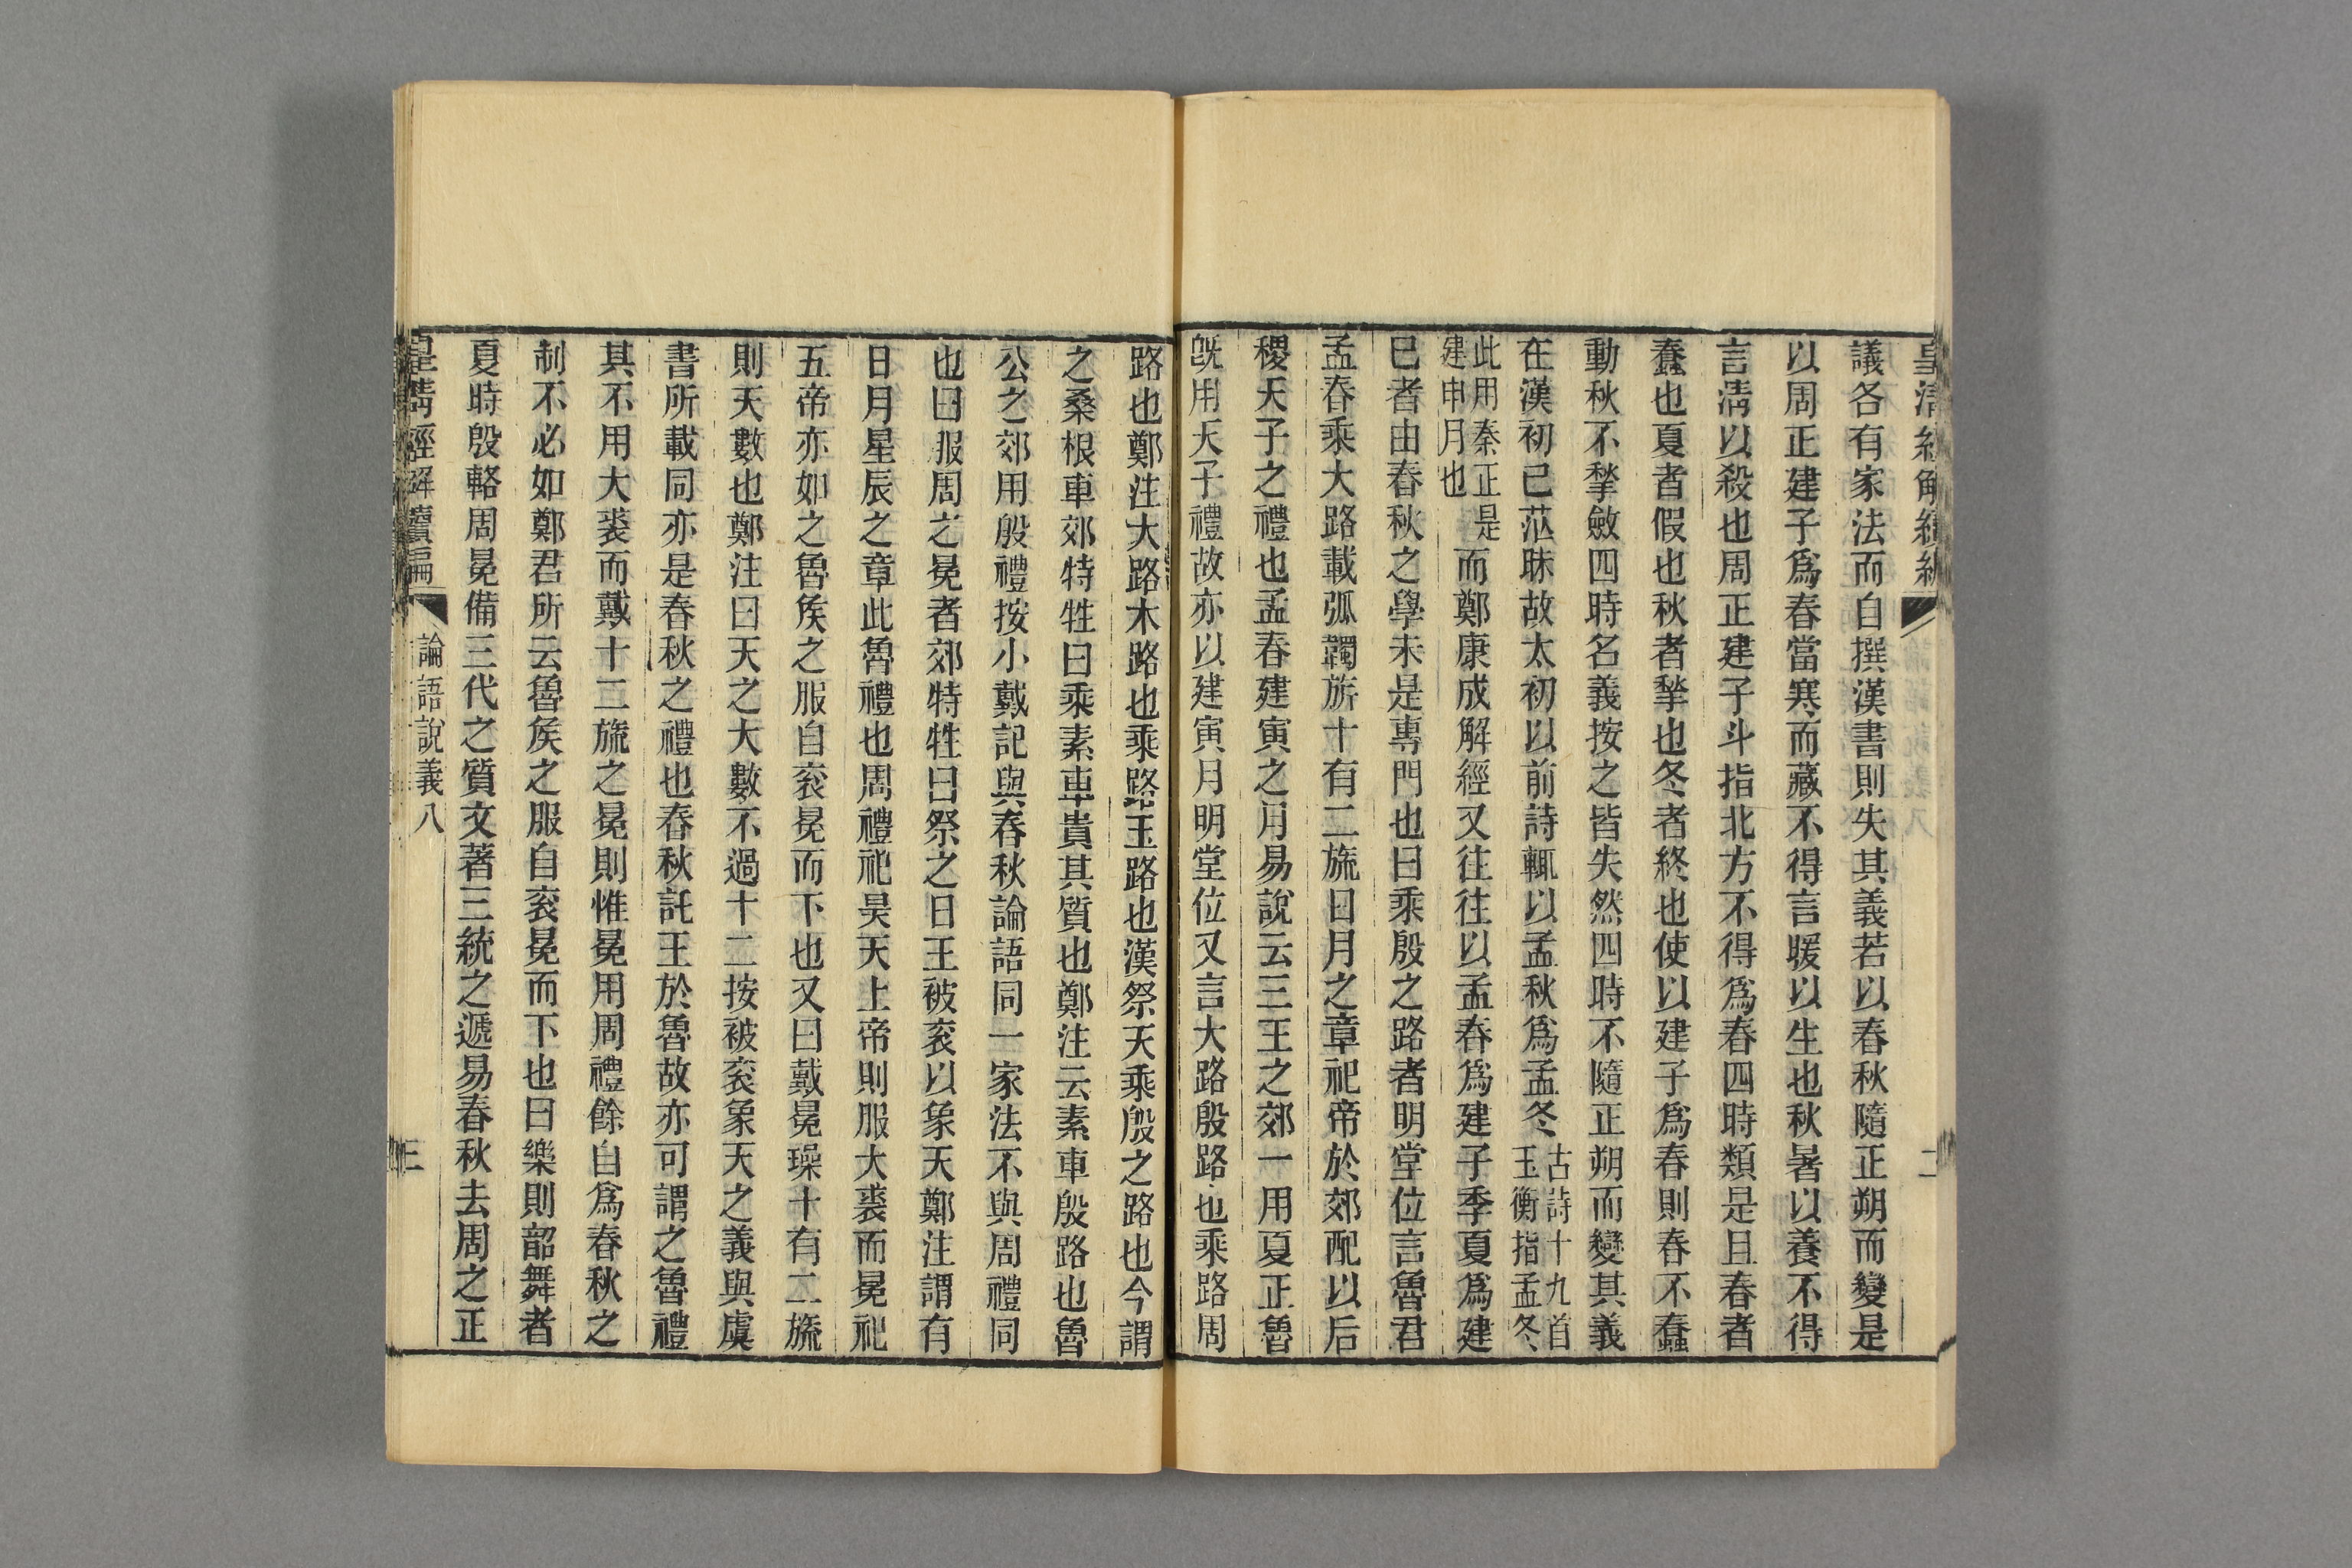 議各有家法而自撰漢書則失其義若以春秋隨正朔而變是
以周正建子爲春當寒而藏不得言暖以生也秋暑以養不得
言淸以殺也周正建子斗指北方不得爲春四時類是且春者
蠢也夏者假也秋者揫也冬者終也使以建子爲春則春不蠢
動秋不揫斂四時名義按之皆失然四時不隨正朔而變其義
在漢初已茫昧故太初以前詩輒以孟秋爲孟冬
古詩十九首
玉衡指孟冬
此用秦正是
建申月也
而鄭康成解經又往往以孟春爲建子季夏爲建
巳者由春秋之學未是專門也曰乘殷之路者明堂位言魯君
孟春乘大路載弧韣旂十有二旒日月之章祀帝於郊配以后
稷天子之禮也孟春建寅之月易說云三王之郊一用夏正魯
旣用天子禮故亦以建寅月明堂位又言大路殷路也乘路周
路也鄭注大路木路也乘路玉路也漢祭天乘殷之路也今謂
之桑根車郊特牲曰乘素車貴其質也鄭注云素車殷路也魯
公之郊用殷禮按小戴記與春秋論語同一家法不與周禮同
也曰服周之冕者郊特牲曰祭之日王被衮以象天鄭注謂有
日月星辰之章此魯禮也周禮祀昊天上帝則服大裘而冕祀
五帝亦如之魯矦之服自衮冕而下也又曰戴冕璪十有二旒
則天數也鄭注曰天之大數不過十二按被衮象天之義與虞
書所載同亦是春秋之禮也春秋託王於魯故亦可謂之魯禮
其不用大裘而戴十二旒之冕則惟冕用周禮餘自爲春秋之
制不必如鄭君所云魯矦之服自衮冕而下也曰樂則韶舞者
夏時殷輅周冕備三代之質文著三統之遞易春秋去周之正
皇淸經解續編
論語說義八
三